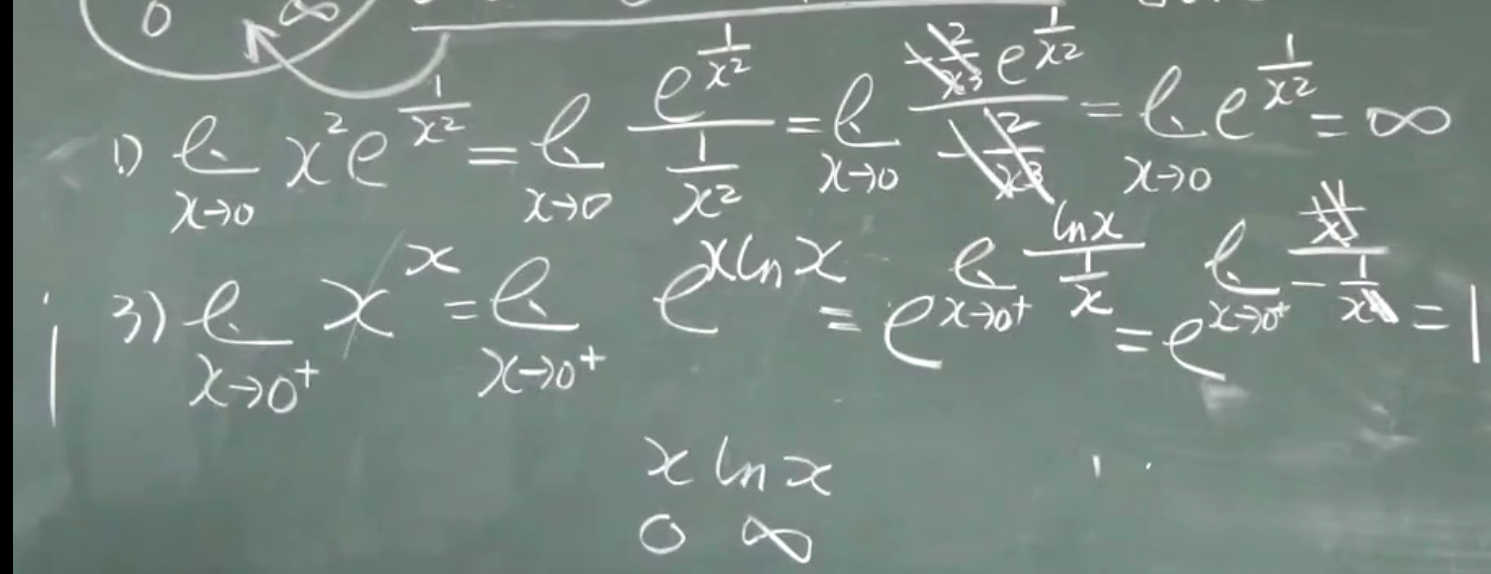 0 ∞
1) lim_{x→0} x² e^{1/x²} = lim_{x→0} e^{1/x²} / (1/x²) = lim_{x→0} (-2/x³ e^{1/x²}) / (-2/x³) = lim_{x→0} e^{1/x²} = ∞
3) lim_{x→0⁺} x^x = lim_{x→0⁺} e^{x ln x} = e^{lim_{x→0⁺} ln x / (1/x)} = e^{lim_{x→0⁺} (1/x) / (-1/x²)} = 1
x ln x
0 ∞